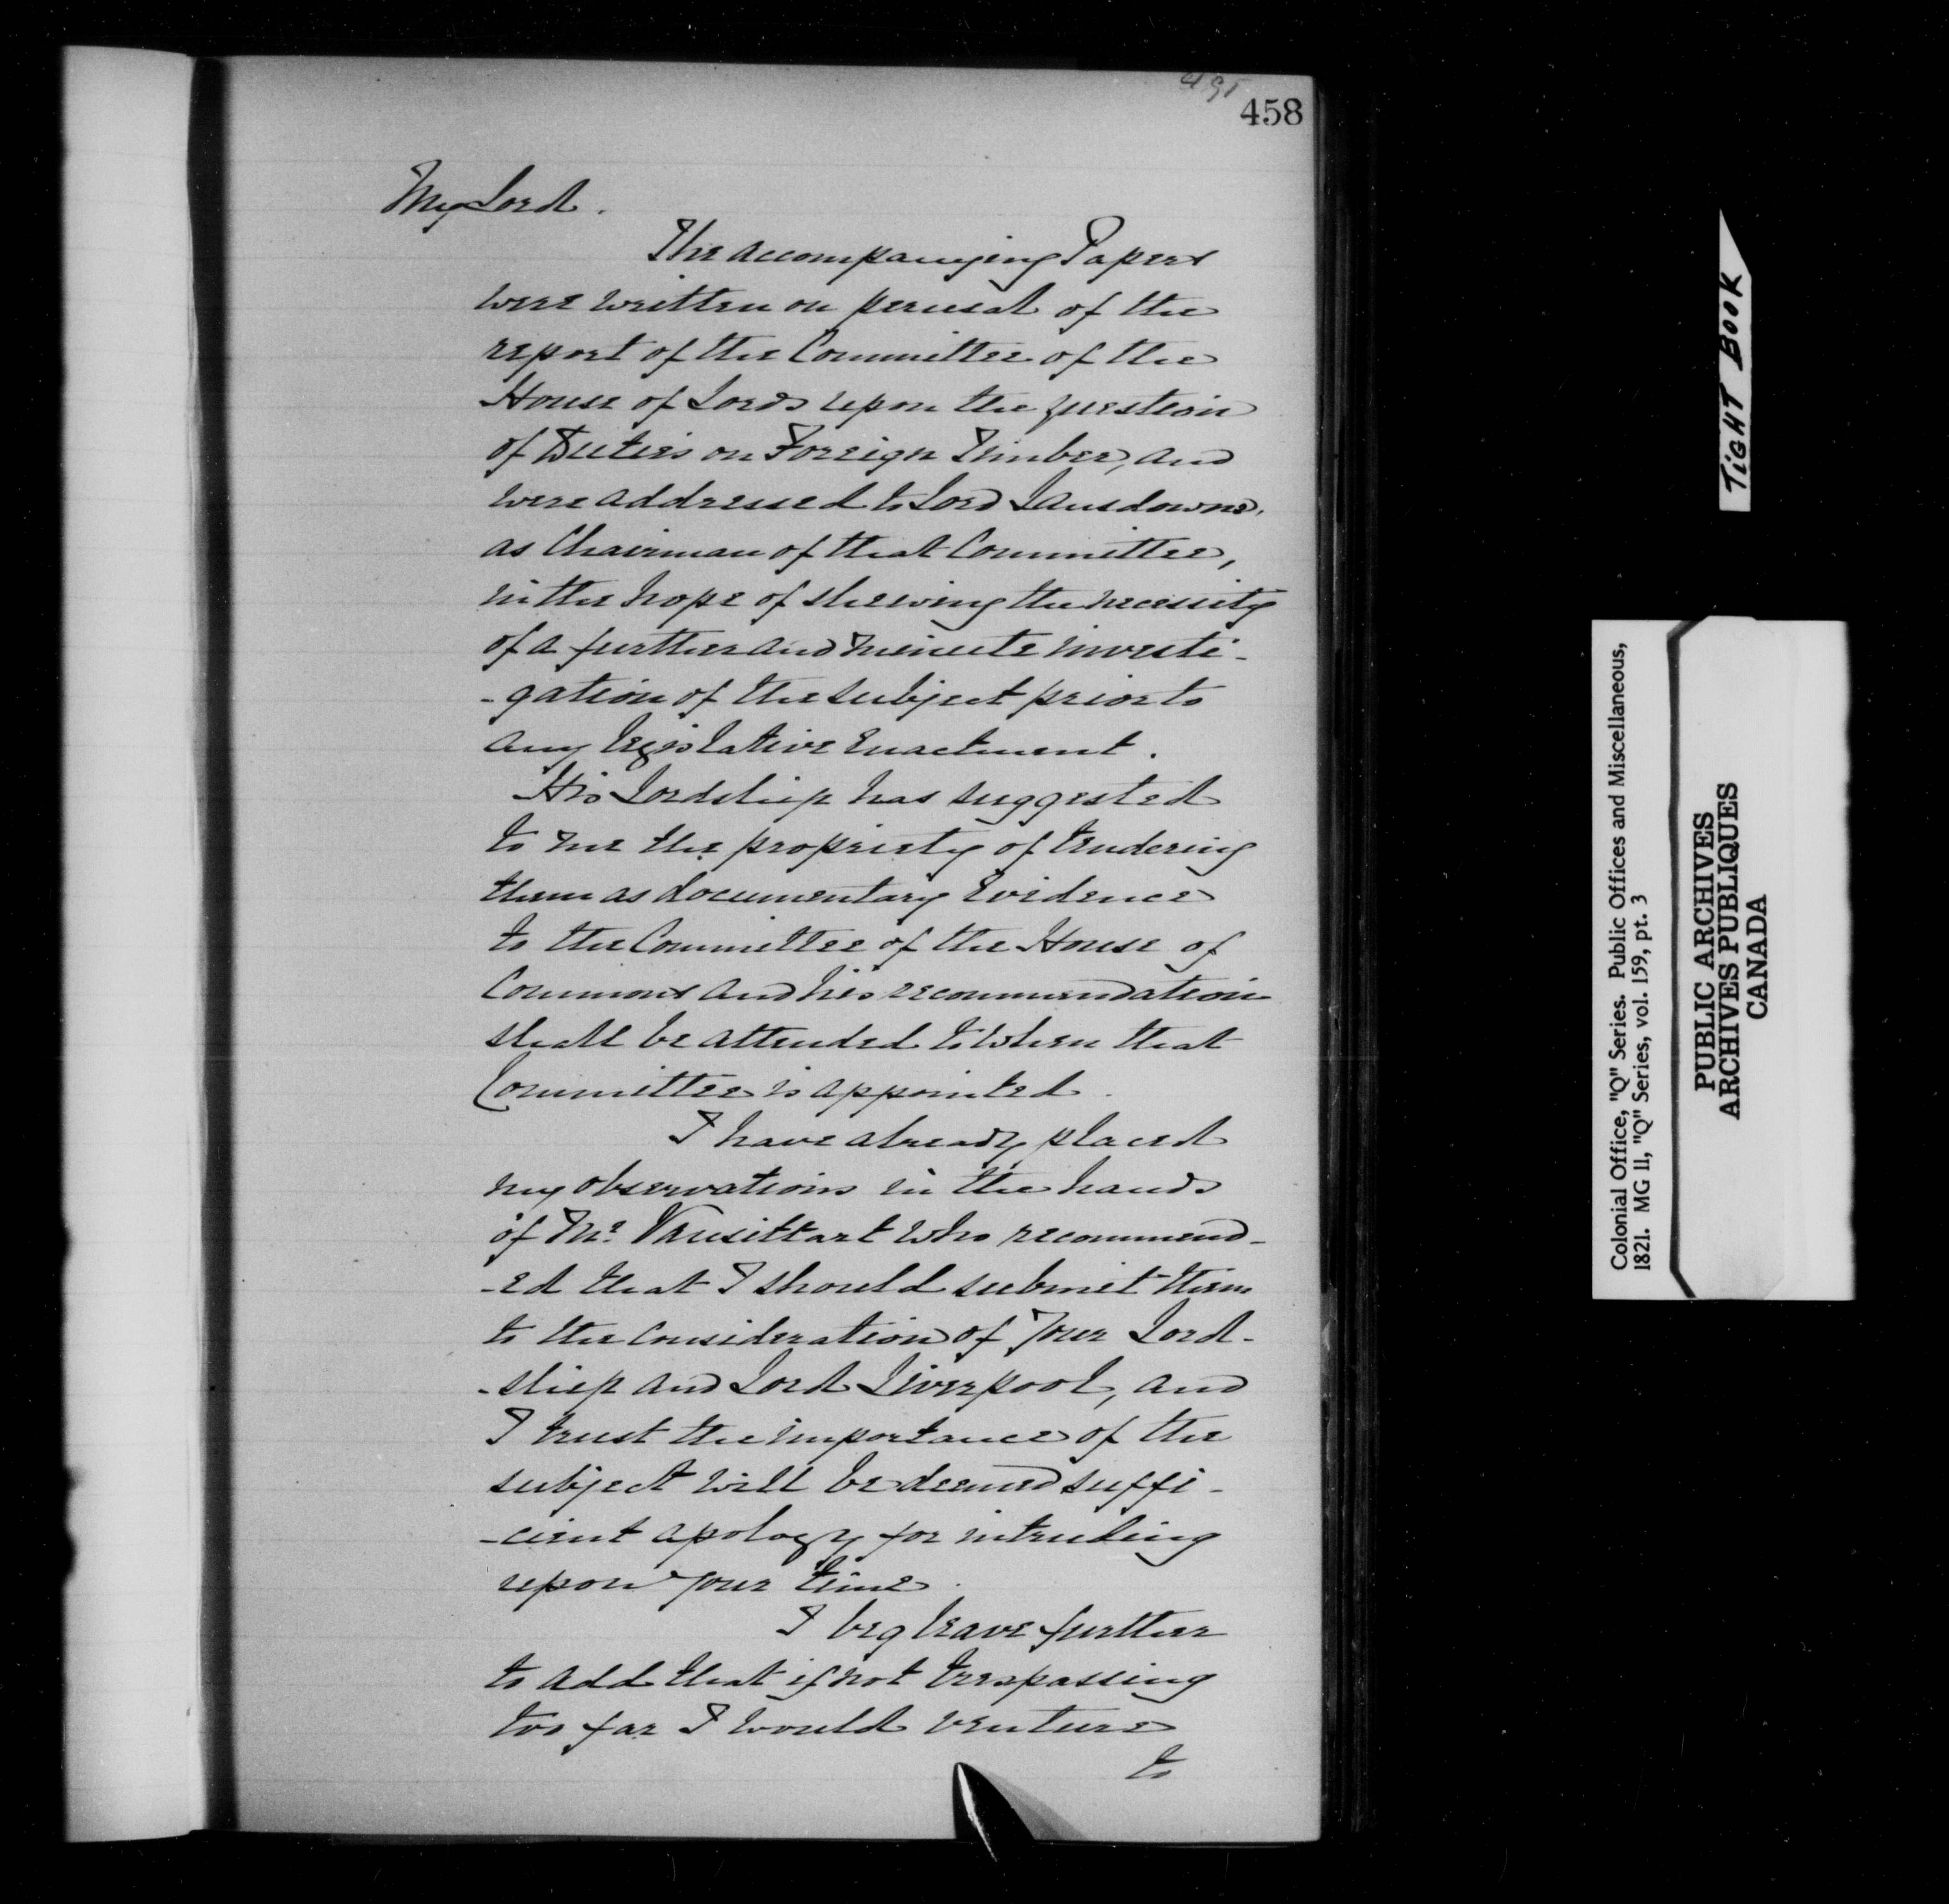 458
My Lord.
The accompanying Papers
were written on perusal of the
report of the Committee of the
House of Lords upon the question
of Duties on Foreign Timber, and
were addressed to Lord Lansdowne,
as Chairman of that Committee,
in the hope of shewing the necessity
of a further and minute investi-
-gation of the subject prior to
any legislative enactment.
His Lordship has suggested
to me the propriety of tendering
them as documentary Evidence
to the Committee of the House of
Commons and his recommendation
shall be attended to when that
Committee is appointed.
I have already placed
my observations in the hands
of Mr. Vansittart who recommend-
-ed that I should submit them
to the consideration of Your Lord-
-ship and Lord Liverpool, and
I trust the importance of the
subject will be deemed suffi-
-cient apology for intruding
upon your time.
I beg leave further
to add that if not trespassing
too far I would venture
to
TIGHT BOOK
Colonial Office, "Q" Series. Public Offices and Miscellaneous,
1821. MG 11, "Q" Series, vol. 159, pt. 3
PUBLIC ARCHIVES
ARCHIVES PUBLIQUES
CANADA